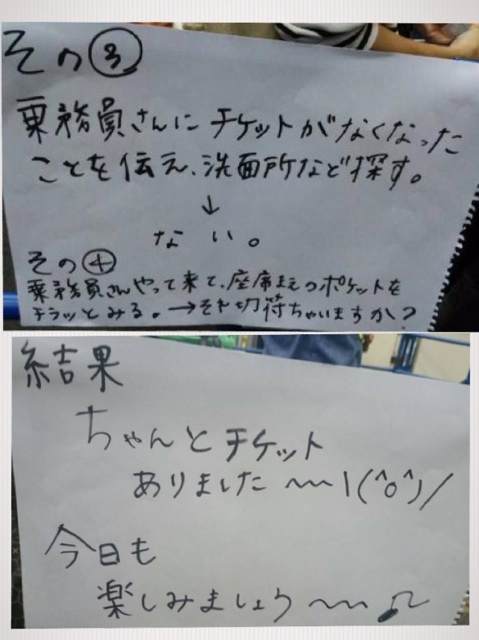 その③
乗務員さんにチケットがなくなった
ことを伝え、洗面所など探す。
↓
ない。
その④
乗務員さんやって来て、座席まえのポケットを
チラッとみる。→それ切符ちゃいますか?
結果
ちゃんとチケット
ありました〜〜\(^o^)/
今日も
楽しみましょう〜〜♫